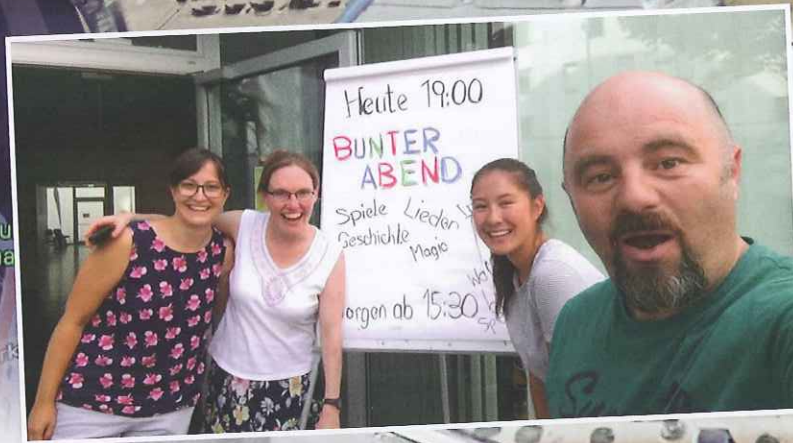 Heute 19:00
BUNTER
ABEND
Spiele Lieder
Geschichte
Magie
orgen ab 15:30